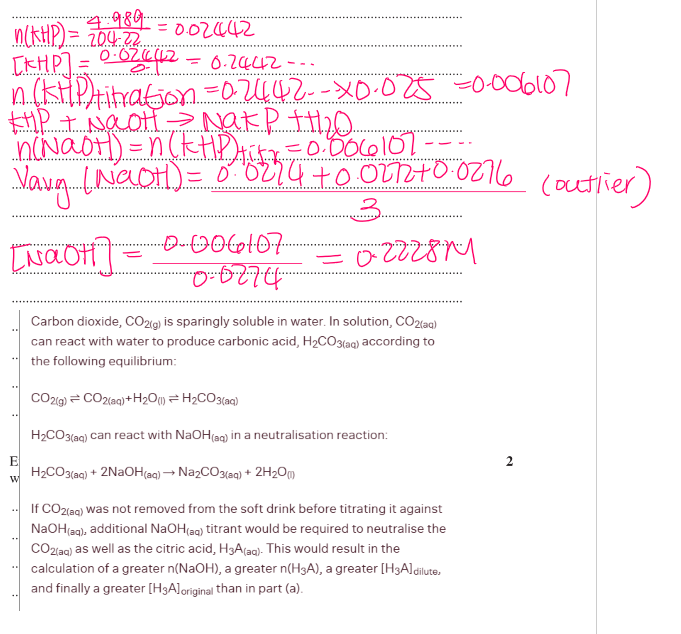 n(KHP) = 4.989 / 204.22 = 0.02442
[KHP] = 0.02442 / 0.1 = 0.2442 ---
n(KHP)titration = 0.2442.-- x 0.025 = 0.006107
KHP + NaOH → NaKP + H2O
n(NaOH) = n(KHP)titr = 0.006107 ----
Vavg (NaOH) = 0.0274 + 0.0272 + 0.0276 / 3 (outlier)
[NaOH] = 0.006107 / 0.0274 = 0.2228M
Carbon dioxide, CO2(g) is sparingly soluble in water. In solution, CO2(aq)
can react with water to produce carbonic acid, H2CO3(aq) according to
the following equilibrium:
CO2(g) ⇌ CO2(aq)+H2O(l) ⇌ H2CO3(aq)
H2CO3(aq) can react with NaOH(aq) in a neutralisation reaction:
E
2
w
H2CO3(aq) + 2NaOH(aq) → Na2CO3(aq) + 2H2O(l)
If CO2(aq) was not removed from the soft drink before titrating it against
NaOH(aq), additional NaOH(aq) titrant would be required to neutralise the
CO2(aq) as well as the citric acid, H3A(aq). This would result in the
calculation of a greater n(NaOH), a greater n(H3A), a greater [H3A]dilute,
and finally a greater [H3A]original than in part (a).